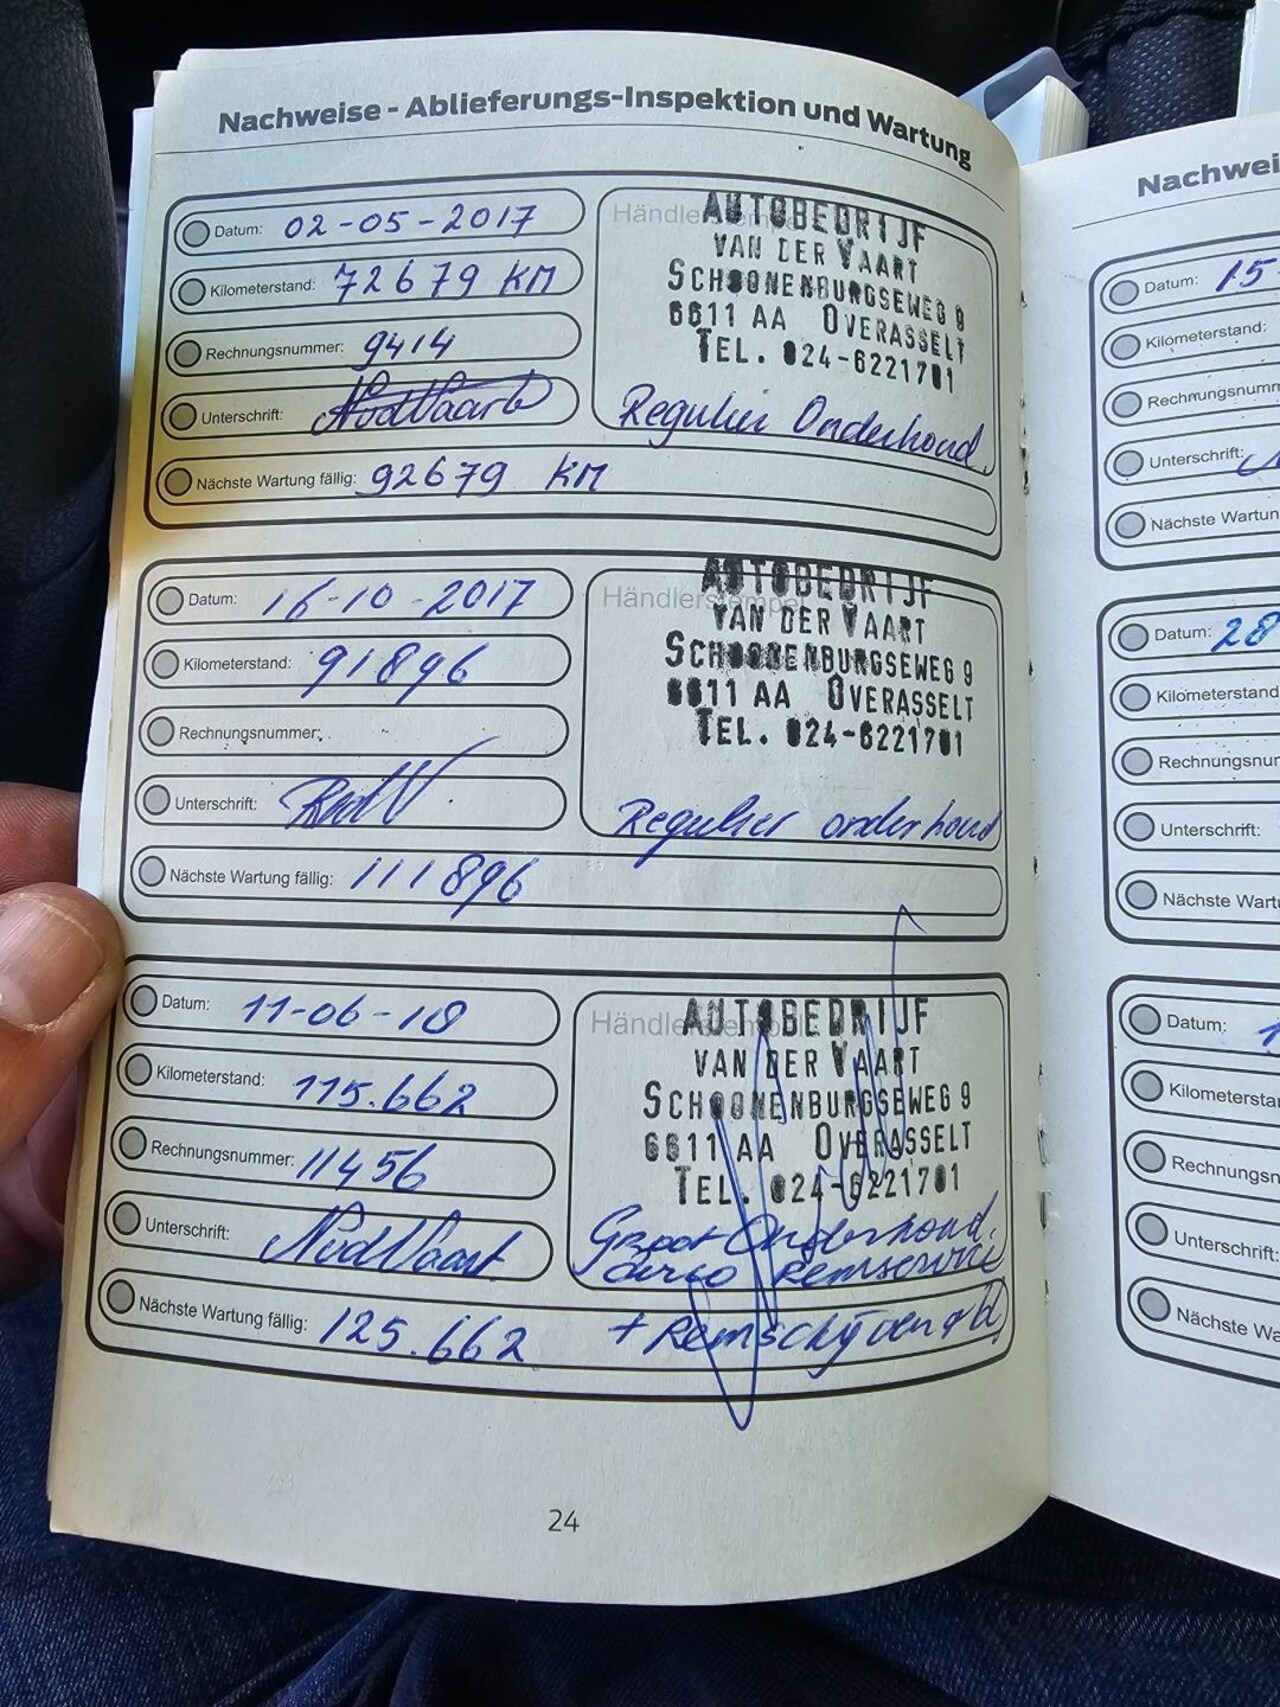 Nachweise - Ablieferungs-Inspektion und Wartung
Datum: 02-05-2017
Kilometerstand: 72679 KM
Rechnungsnummer: 9414
Unterschrift:
Nächste Wartung fällig: 92679 KM
Händlerstempel
AUTOBEDRIJF
VAN DER VAART
SCHOONENBURGSEWEG 9
6611 AA OVERASSELT
TEL. 024-6221701
Regulier Onderhoud.
Datum: 16-10-2017
Kilometerstand: 91896
Rechnungsnummer:
Unterschrift:
Nächste Wartung fällig: 111896
Händlerstempel
AUTOBEDRIJF
VAN DER VAART
SCHOONENBURGSEWEG 9
6611 AA OVERASSELT
TEL. 024-6221701
Regulier onderhoud
Datum: 11-06-18
Kilometerstand: 115.662
Rechnungsnummer: 11456
Unterschrift:
Nächste Wartung fällig: 125.662
Händlerstempel
AUTOBEDRIJF
VAN DER VAART
SCHOONENBURGSEWEG 9
6611 AA OVERASSELT
TEL. 024-6221701
Groot Onderhoud.
Airco Remservice
+ Remschijven
24
Nachwei
Datum: 15
Kilometerstand:
Rechnungsnumm
Unterschrift:
Nächste Wartun
Datum: 28
Kilometerstand
Rechnungsnur
Unterschrift:
Nächste Wartu
Datum: 1
Kilometersta
Rechnungsn
Unterschrift:
Nächste Wa